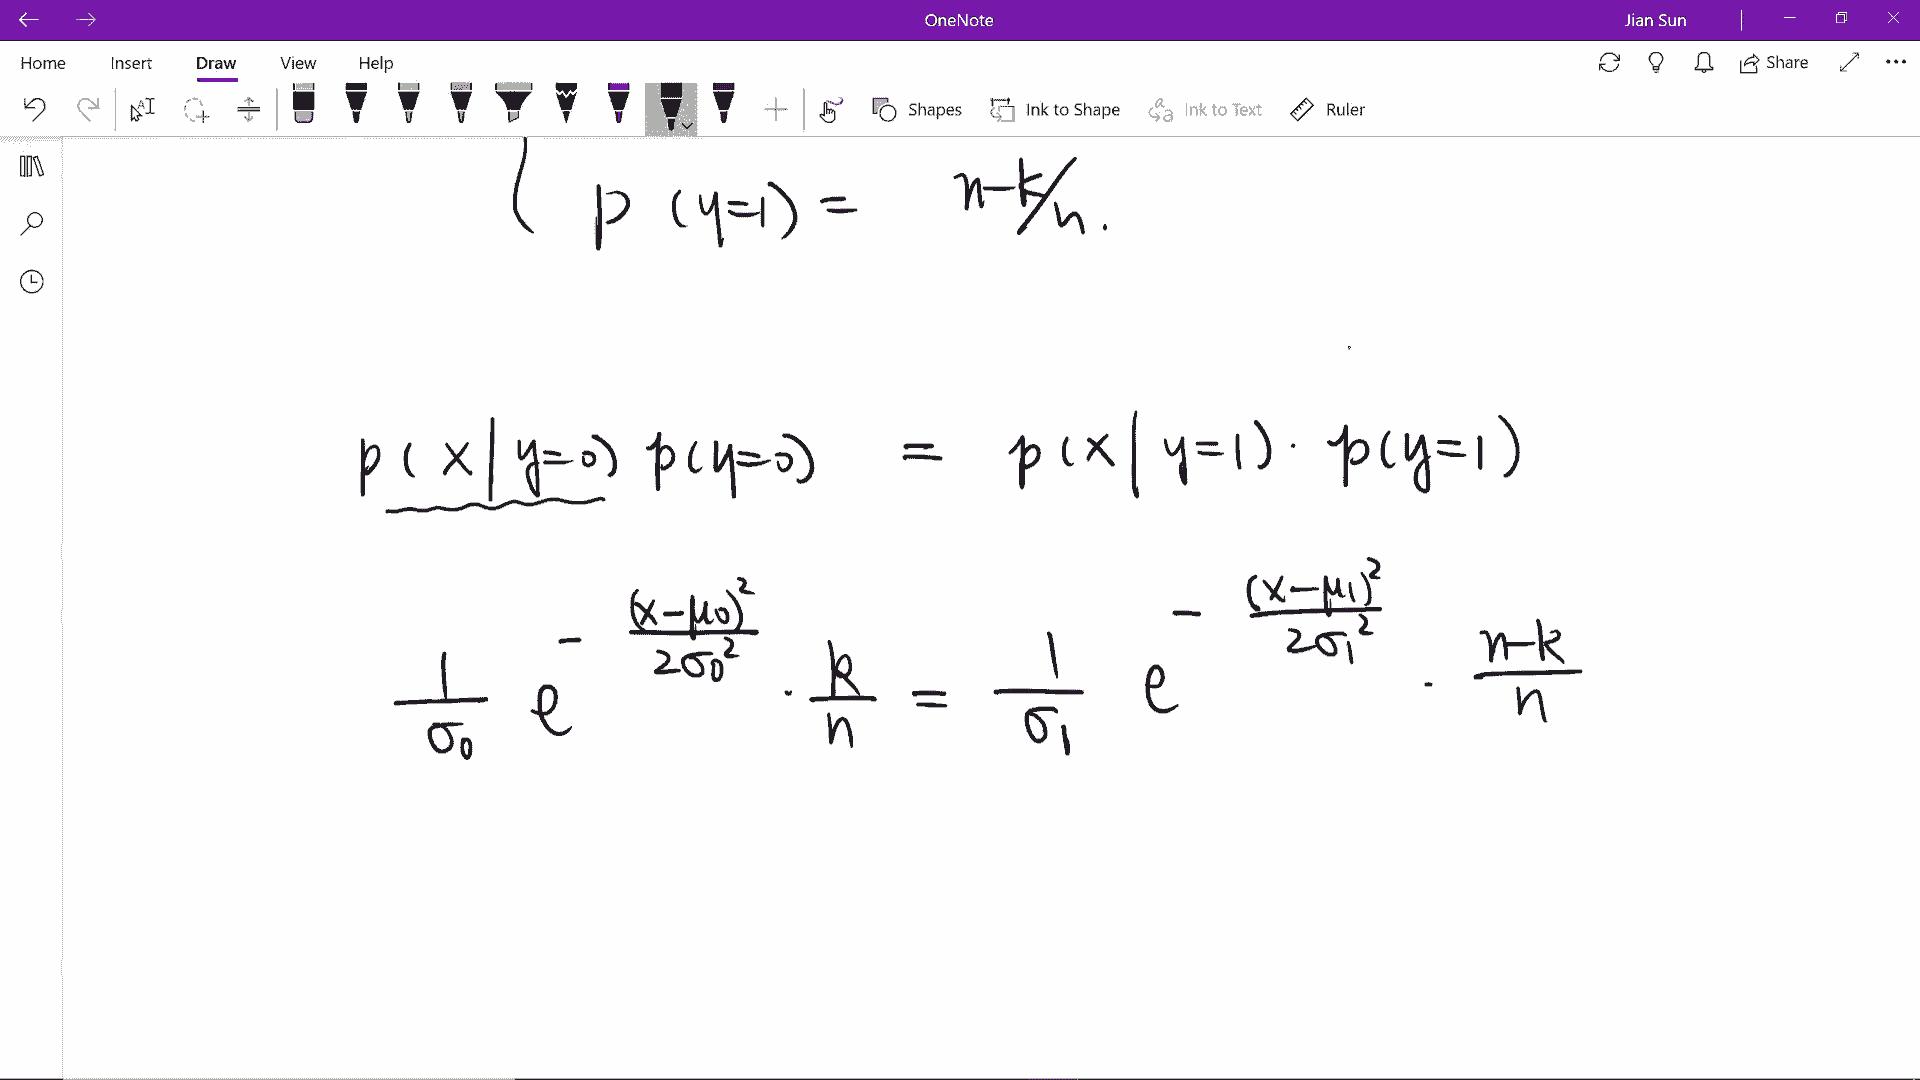 OneNote
Jian Sun
Home Insert Draw View Help
Share
Shapes Ink to Shape Ink to Text Ruler
p (y=1) = n-k/n.
p(x|y=0) p(y=0) = p(x|y=1) · p(y=1)
1/σ₀ e^(-(x-μ₀)²/2σ₀²) · k/n = 1/σ₁ e^(-(x-μ₁)²/2σ₁²) · n-k/n